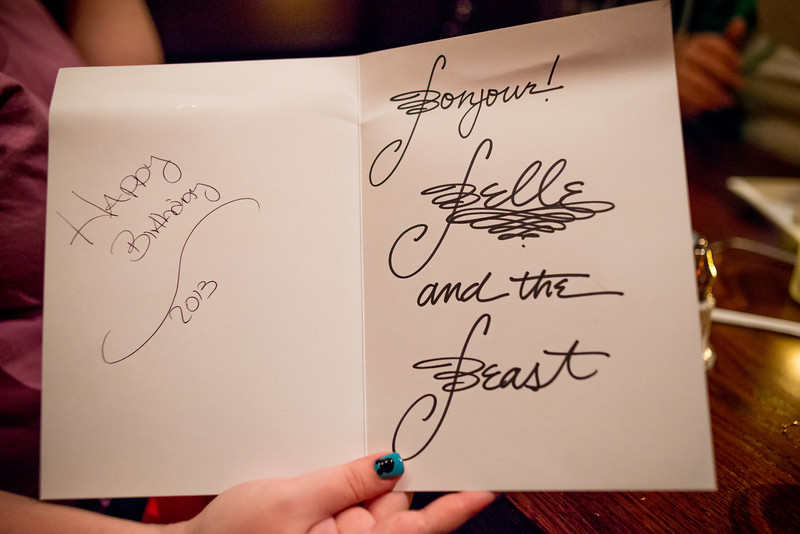 HAPPY
Birthday
2013
Bonjour!
Belle
and the
Beast